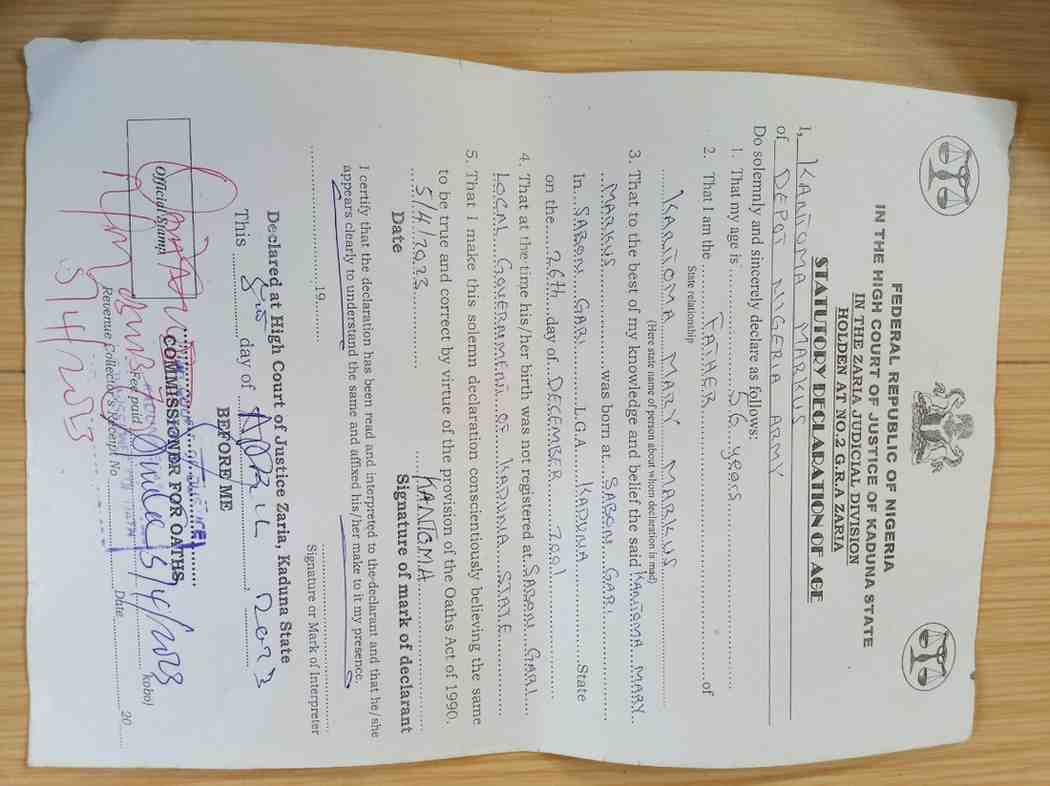 FEDERAL REPUBLIC OF NIGERIA
IN THE HIGH COURT OF JUSTICE OF KADUNA STATE
IN THE ZARIA JUDICIAL DIVISION
HOLDEN AT NO.2 G.R.A ZARIA
STATUTORY DECLARATION OF AGE
I, KANTOMA MARKUS
of DEPOT NIGERIA ARMY
Do solemnly and sincerely declare as follows:
1. That my age is ..........56 years..........
2. That I am the ..........FATHER..........of
State relationship
..........KANTOMA MARY MARKUS
(Here state name of person about whom declaration is mad)
3. That to the best of my knowledge and belief the said KANTOMA MARY
MARKUS..........was born at SABON GARI
In SABON GARI..........L.G.A. KADUNA..........State
on the 26th day of DECEMBER 2001
4. That at the time his/her birth was not registered at SABON GARI
LOCAL GOVERNMENT OF KADUNA STATE
5. That I make this solemn declaration conscientiously believing the same
to be true and correct by virtue of the provision of the Oaths Act of 1990.
5/4/2023 KANTOMA
Date Signature of mark of declarant
I certify that the declaration has been read and interpreted to the declarant and that he/she
appears clearly to understand the same and affixed his/her make to it my presence.
..........19..........
Signature or Mark of Interpreter
Declared at High Court of Justice Zaria, Kaduna State
This 5th day of APRIL, 2023
BEFORE ME
COMMISSIONER FOR OATHS
5/4/2023
Official Stamp
Fee paid kobo)
Revenue Collector's Receipt No. Date 20
5/4/2023